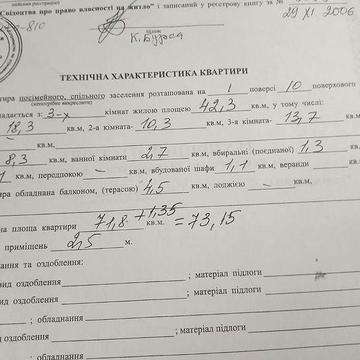 Свідоцтва про право власності на житло" і записаний у реєстрову книгу за №
-810
29 XI. 2006
підпис
К. Бурда
ТЕХНІЧНА ХАРАКТЕРИСТИКА КВАРТИРИ
посімейного, спільного заселення розташована на 1 поверсі 10 поверхового
(непотрібне викреслити)
з: 3-х кімнат жилою площею 42,3 кв.м, у тому числі:
18,3 кв.м, 2-а кімната- 10,3 кв.м, 3-я кімната- 13,7 кв.м
– кв.м,
8,3 кв.м, ванної кімнати 2,7 кв.м, вбиральні (поєднаної) 1,3 кв.м
кв.м, передпокою – кв.м, вбудованої шафи 1,1 кв.м, веранди
обладнана балконом, (терасою) 4,5 кв.м, лоджією – кв.м,
площа квартири 71,8 +1,35 кв.м. = 73,15
приміщень 2,5 м.
та оздоблення:
оздоблення ; матеріал підлоги
вид оздоблення ; матеріал підлоги
; обладнання
вид оздоблення ; матеріал підлоги
; обладнання
оздоблення ; матеріал підлоги